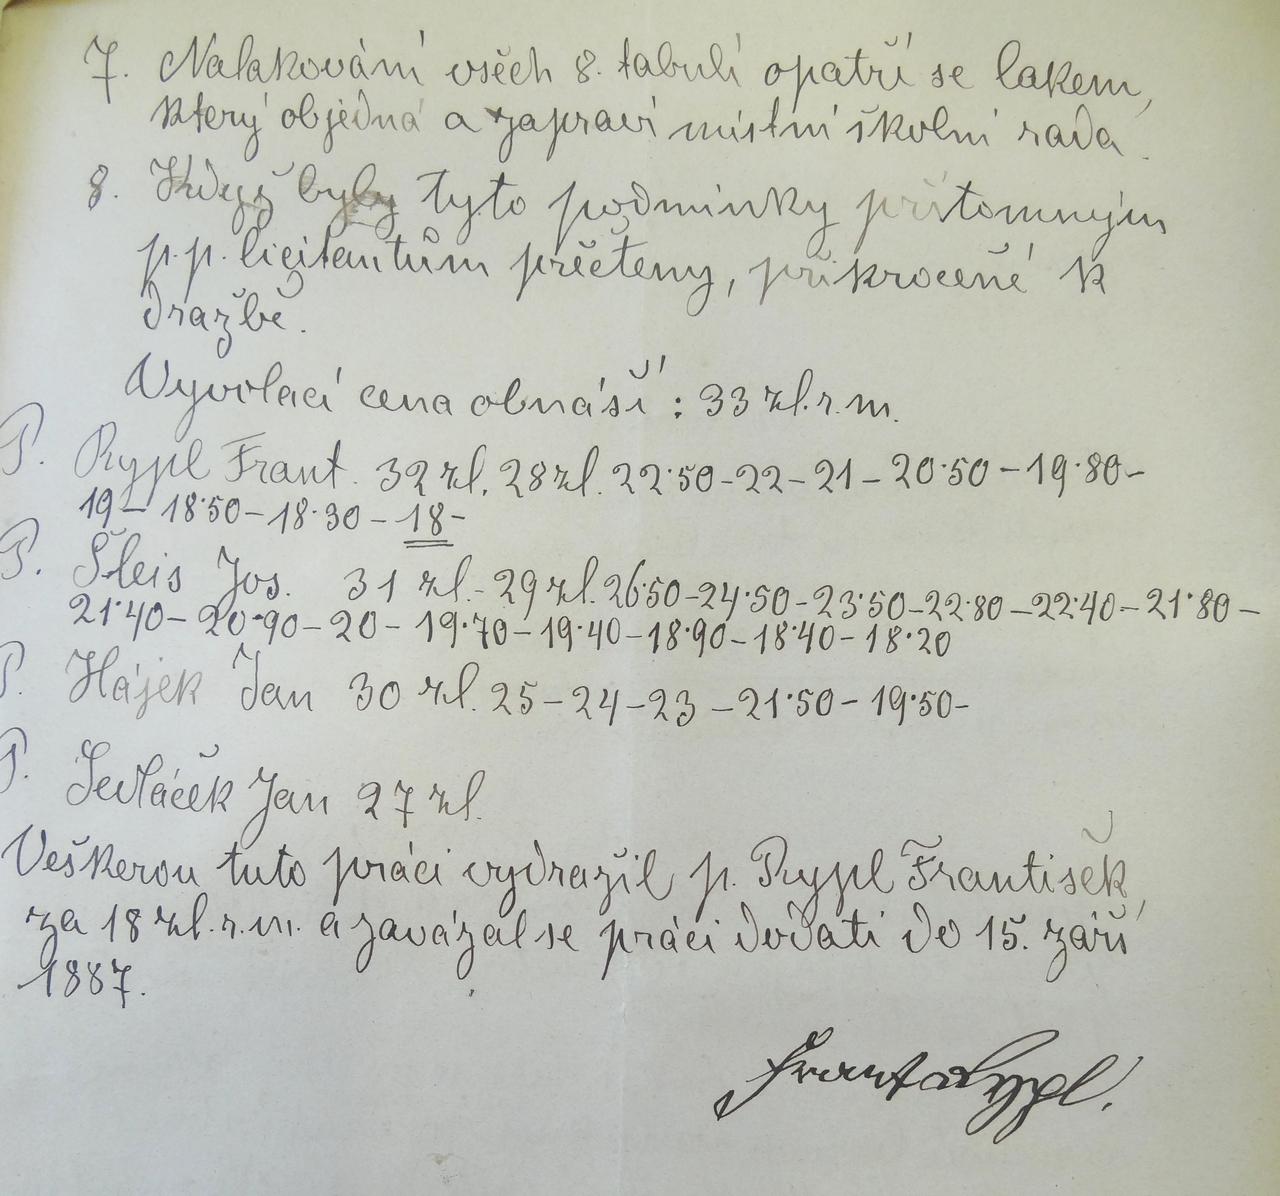 7. Nalakování všech 8. tabulí opatří se lakem,
který objedná a zapraví místní školní rada.
8. Když byly tyto podmínky přítomným
p.p. licitantům přečteny, přikročené k
dražbě.
Vyvolací cena obnáší : 33 zl. r. m.
P. Rypl Frant. 32 zl. 28 zl. 22·50-22-21-20·50-19·80-
19-18·50-18·30-18-
P. Šleis Jos. 31 zl.-29 zl. 26·50-24·50-23·50-22·80-22·40-21·80-
21·40-20·90-20-19·70-19·40-18·90-18·40-18·20
P. Hájek Jan 30 zl. 25-24-23-21·50-19·50-
P. Sedláček Jan 27 zl.
Veškerou tuto práci vydražil p. Rypl František,
za 18 zl. r. m. a zavázal se práci dodati do 15. září
1887.
Frant Rypl.